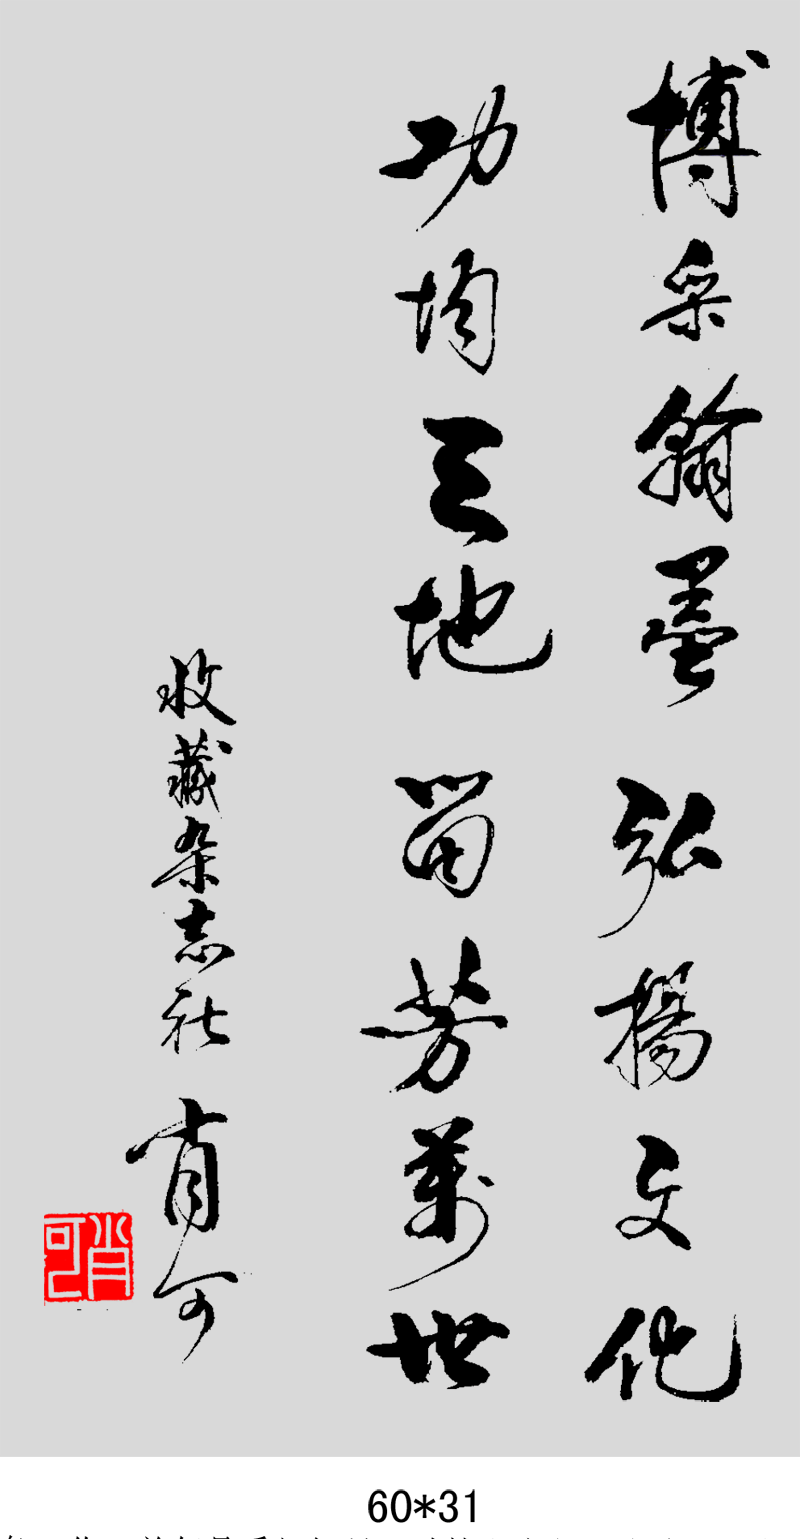 博采翰墨 弘揚文化
功均三地 留芳萬世
收藏杂志社 肖可
肖可
60*31